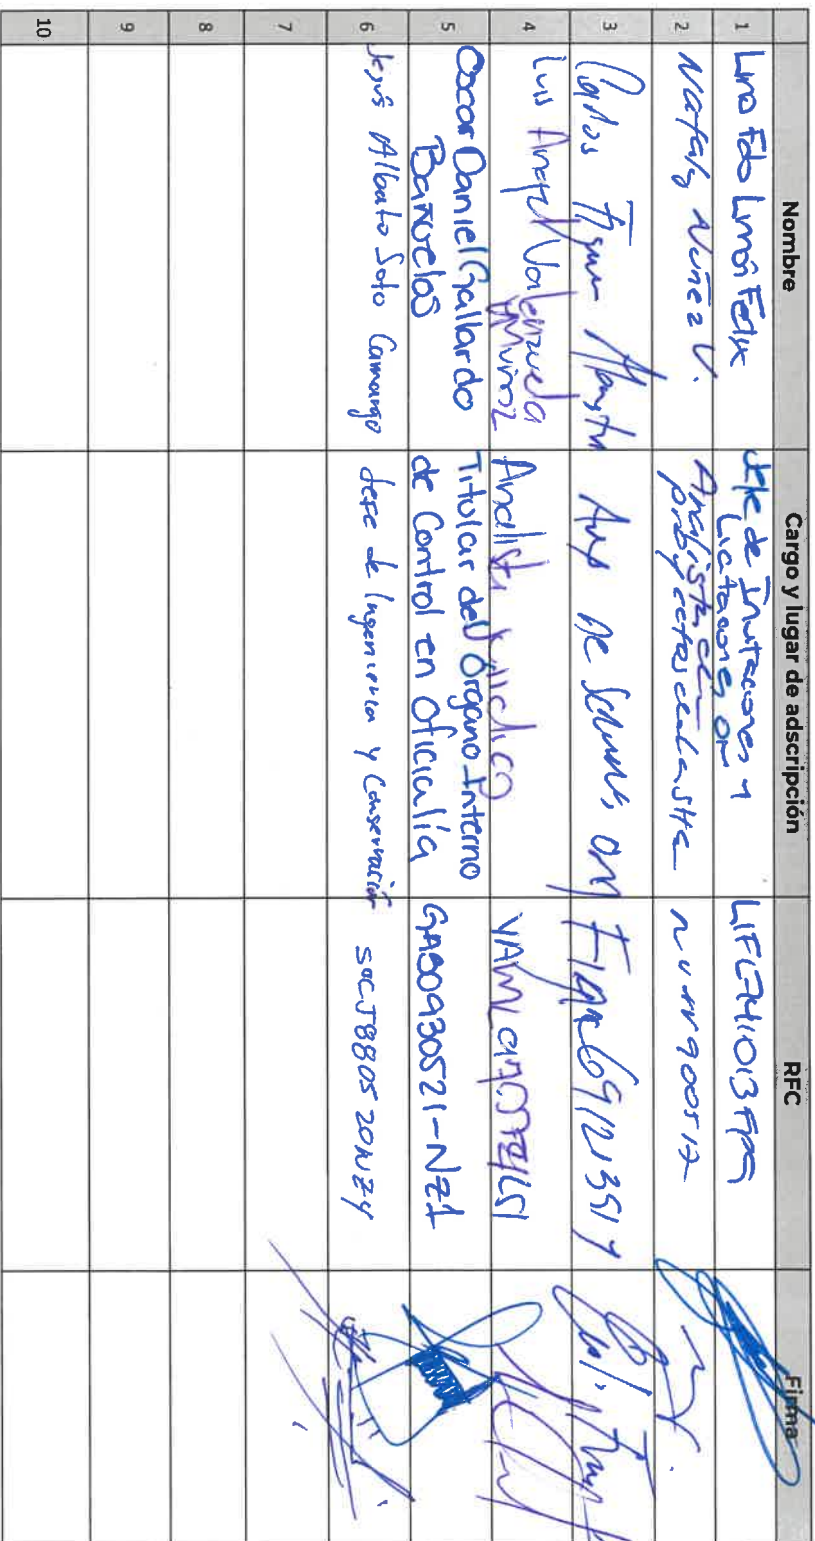 Nombre Cargo y lugar de adscripción RFC Firma
1 Lino Fdo Limón Felix Jefe de Invitaciones y
Licitaciones OM LIFL741013
2 Nataly Nuñez V. Analista de
proyectos NUVN900517
3 Carlos Aux de OM
4 Luis Angel Valenzuela
Muñoz Analista Jurídico
5 Oscar Daniel Gallardo
Bañuelos Titular del Órgano Interno
de Control en Oficialía GABO930521-NZ1
6 Jesús Alberto Soto Camargo Jefe de Ingeniería y Conservación SOCJ880520NZ4
7
8
9
10